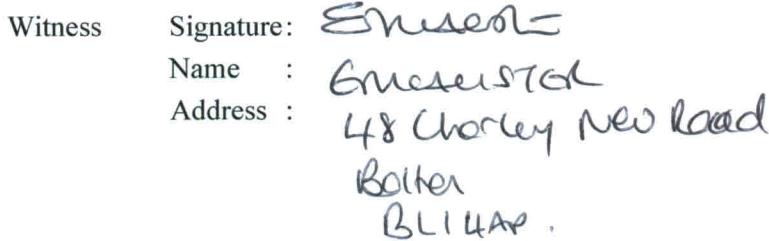 Witness Signature:
Name : E McALISTER
Address : 48 Chorley New Road
Bolton
BL1 4AP.